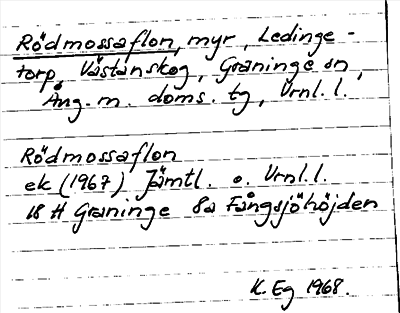 Rödmossaflon, myr, Ledinge-
torp, Västanskog, Graninge sn,
Ång. m. doms. tg, Vrnl. l.
Rödmossaflon
ek (1967) Jämtl. o. Vrnl. l.
18 H Graninge 8a Fångsjöhöjden
K. Eg 1968.